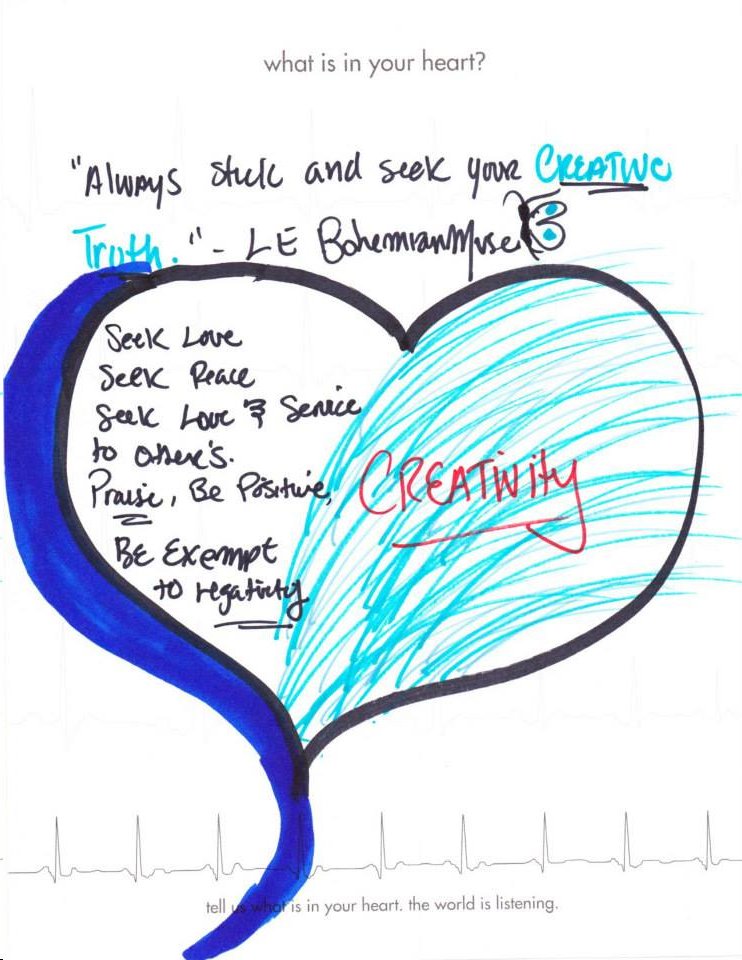 what is in your heart?
"Always stick and seek your CREATIVE
Truth." - LE BohemianMuse
Seek Love
Seek Peace
Seek Love & Service
to other's.
Praise, Be Positive,
CREATIVITY
BE Exempt
to negativity
tell us what is in your heart. the world is listening.